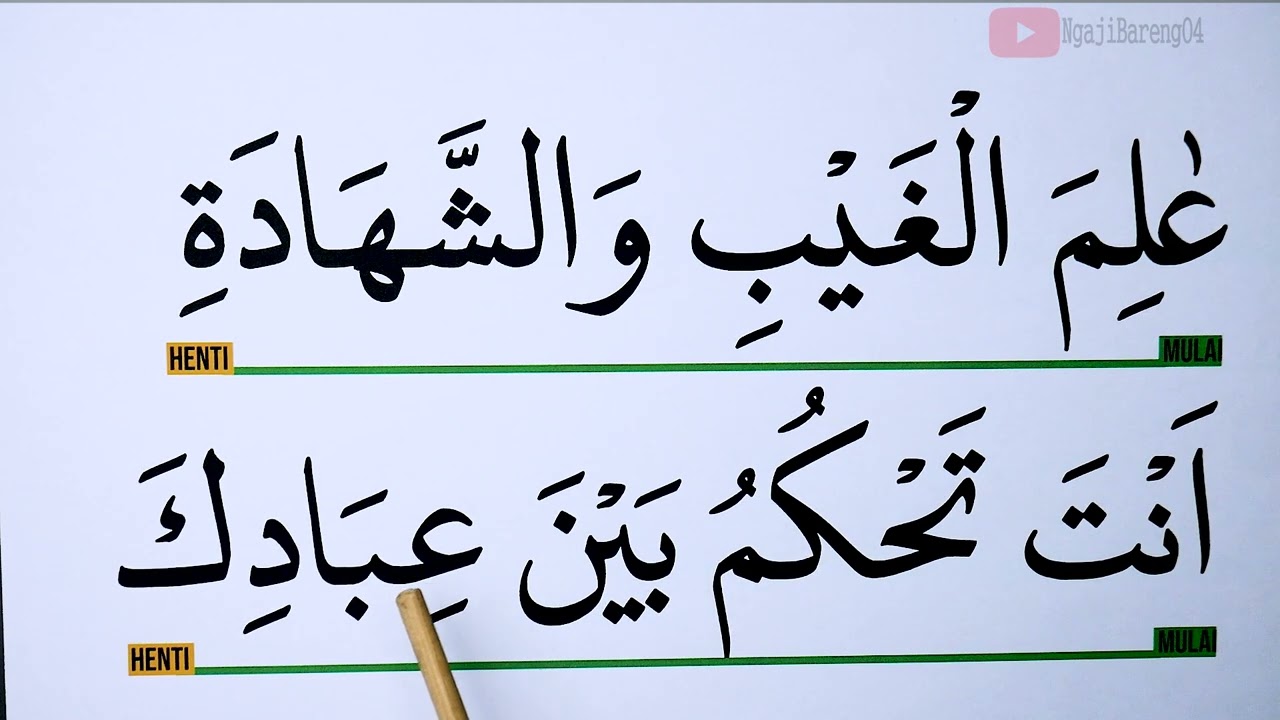 NgajiBareng04
عٰلِمَ الْغَيْبِ وَالشَّهَادَةِ
HENTI MULAI
اَنْتَ تَحْكُمُ بَيْنَ عِبَادِكَ
HENTI MULAI